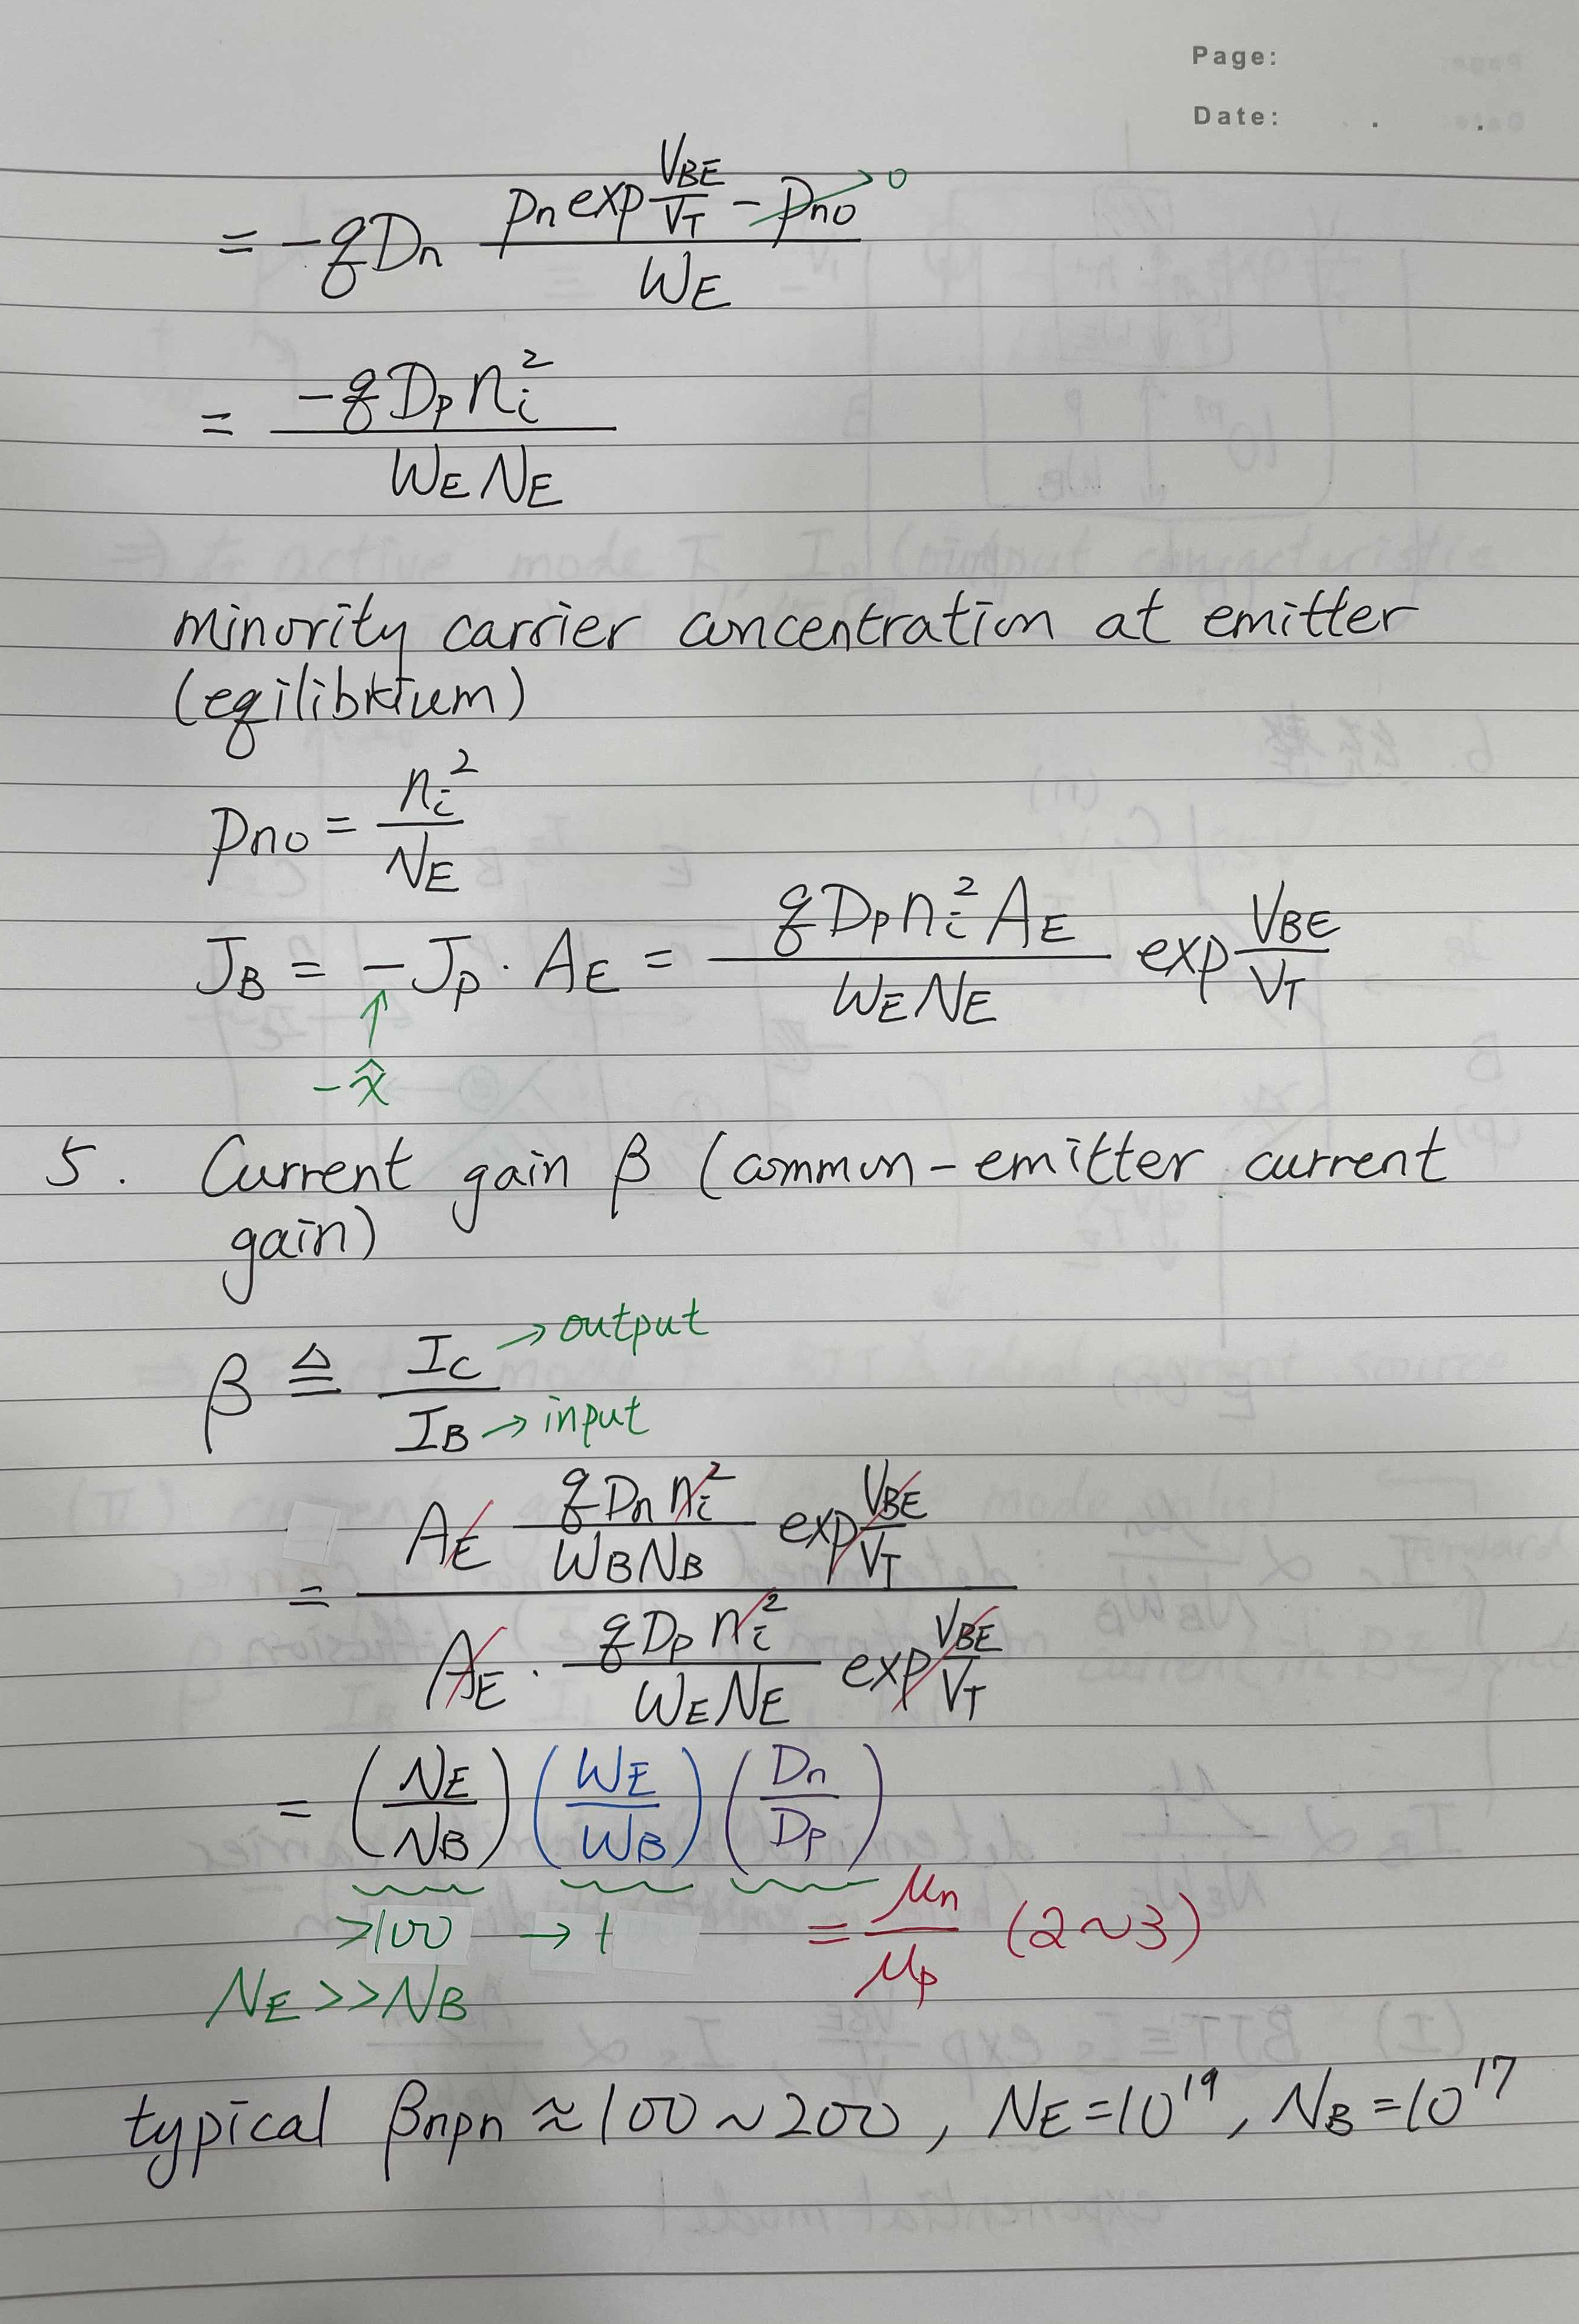 Page:
Date: . .
= -qDn (pn exp VBE/VT - pno → 0) / WE
= -qDp ni² / WE NE
minority carrier concentration at emitter
(eqilibrium)
pno = ni² / NE
JB = -Jp · AE = qDp ni² AE / WE NE exp VBE/VT
-x̂
5. Current gain β (common-emitter current
gain)
β ≜ IC → output / IB → input
= AE qDn ni² / WB NB exp VBE/VT / AE · qDp ni² / WE NE exp VBE/VT
= (NE/NB) (WE/WB) (Dn/Dp)
>100 → 1 = μn/μp (2~3)
NE >> NB
typical βnpn ≈ 100 ~ 200, NE = 10¹⁹, NB = 10¹⁷